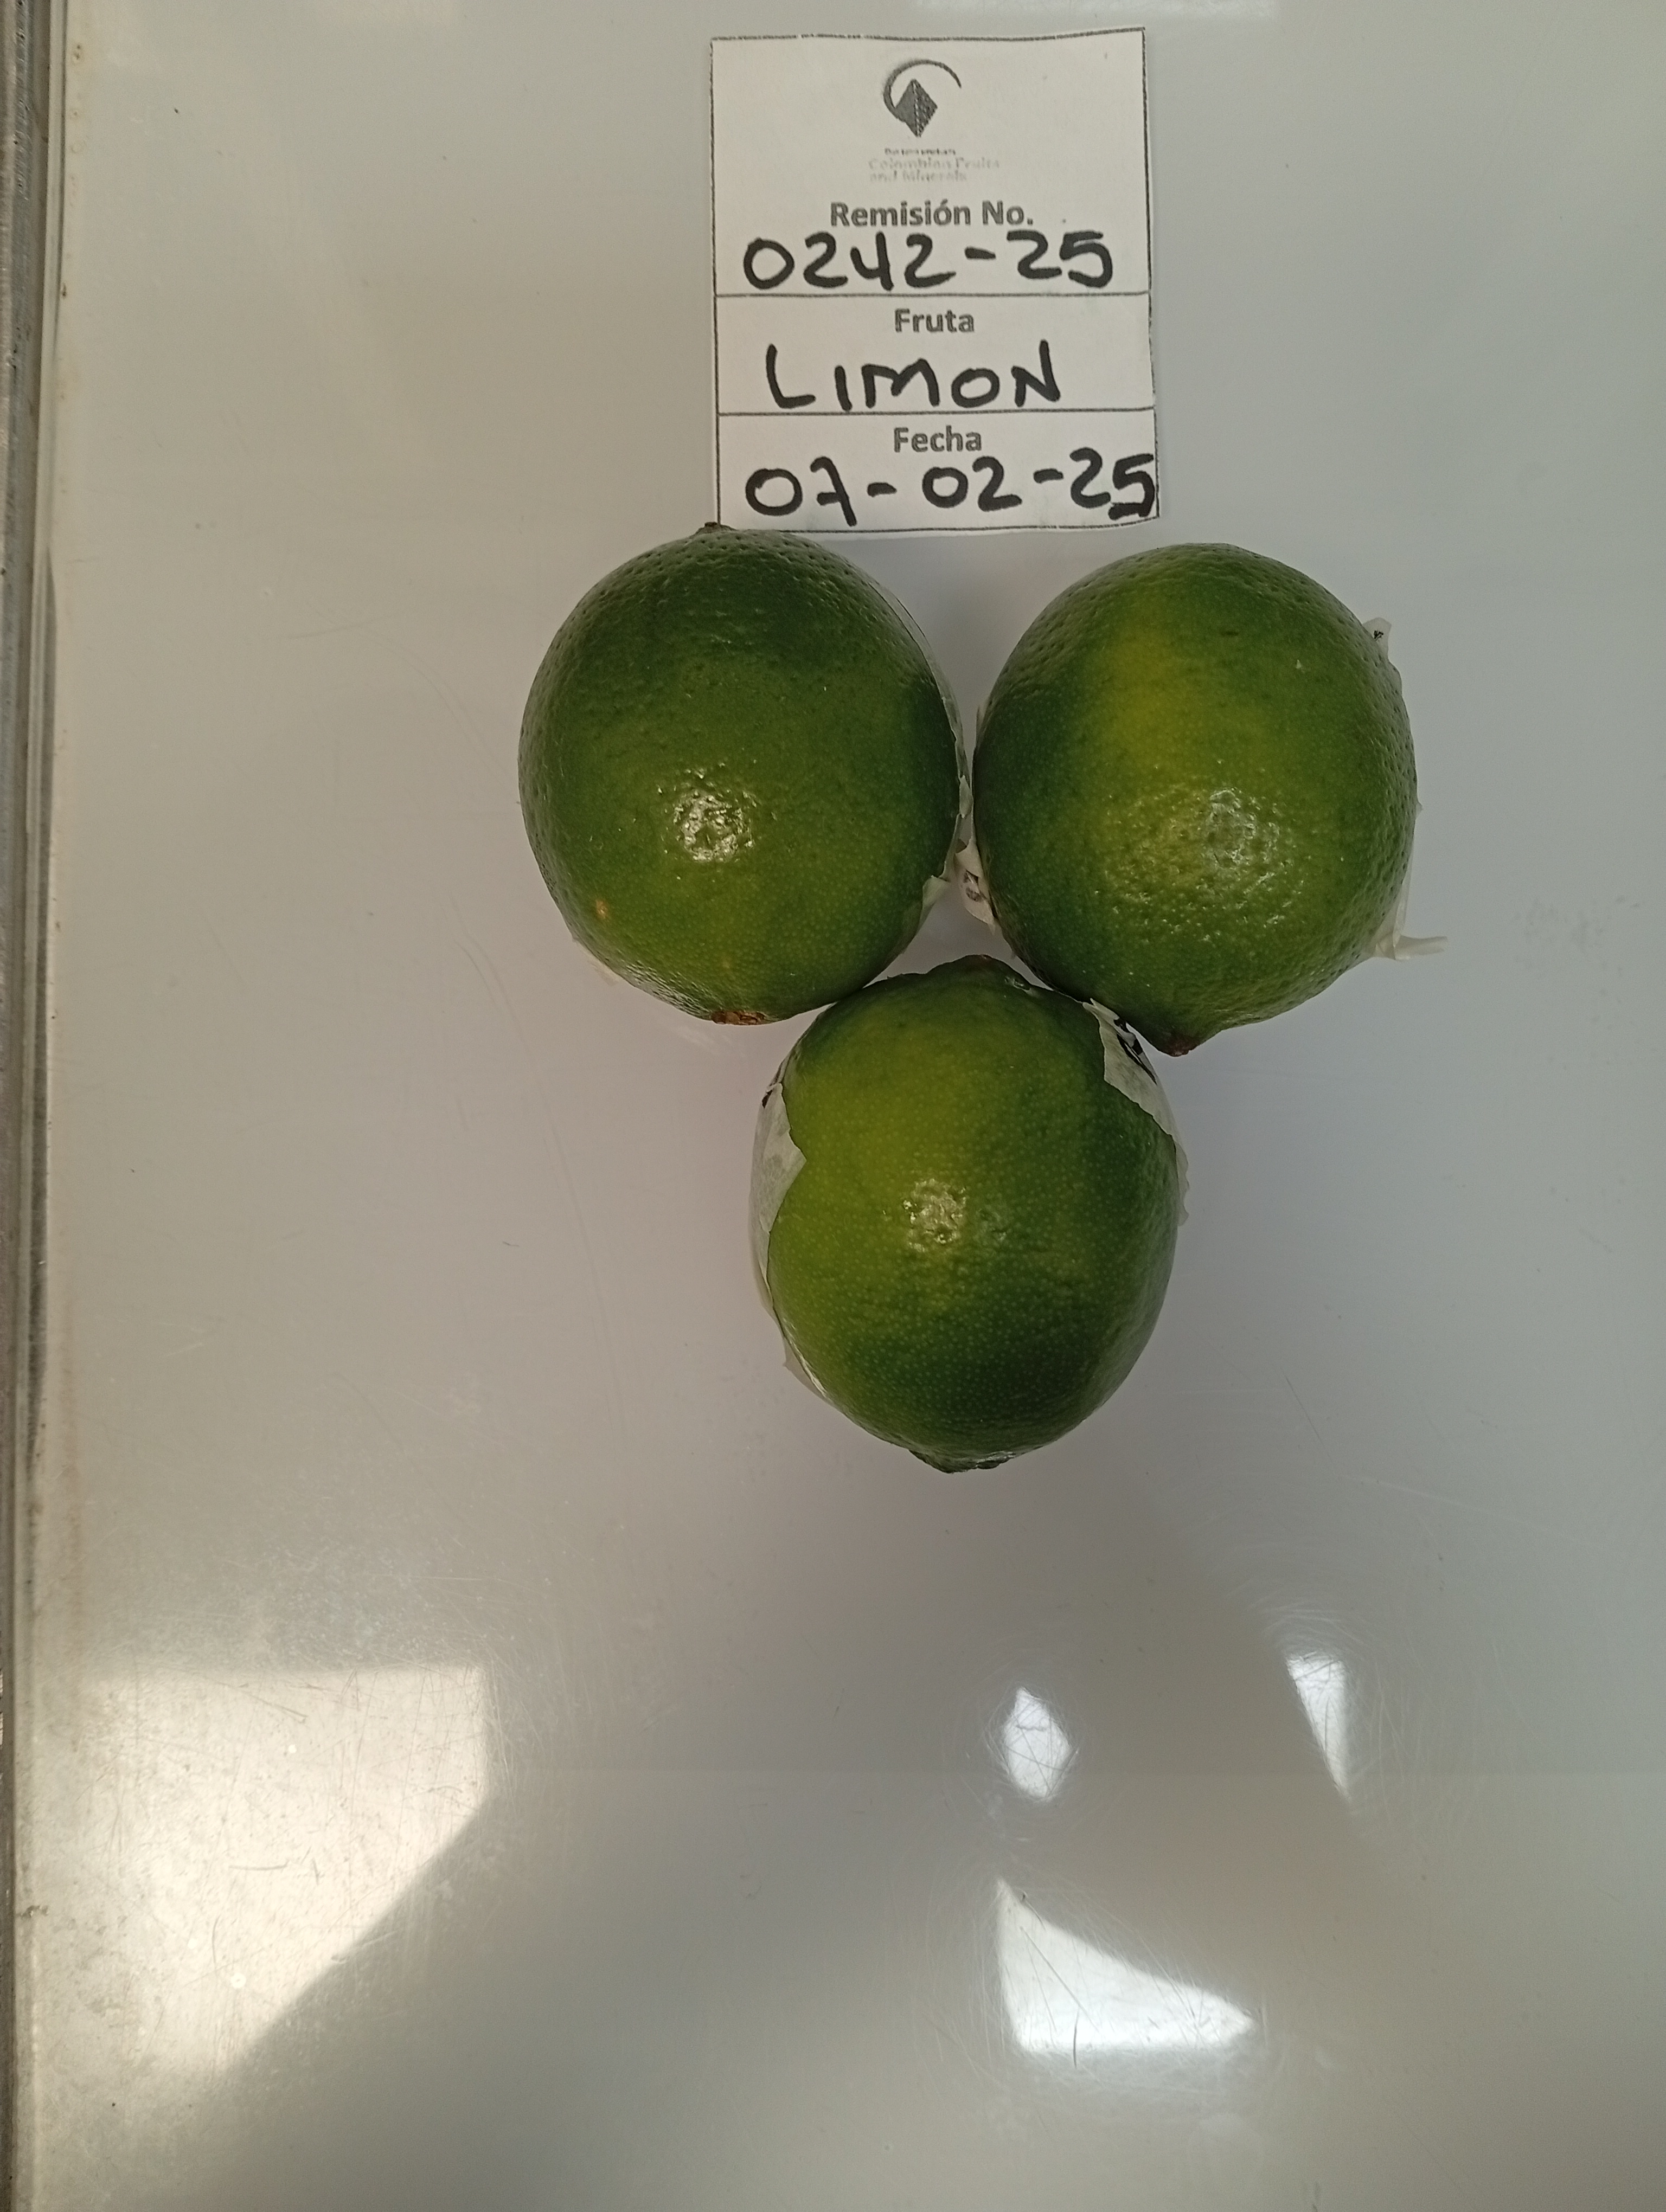 Colombian Fruits
and Minerals
Remisión No.
0242-25
Fruta
LIMON
Fecha
07-02-25